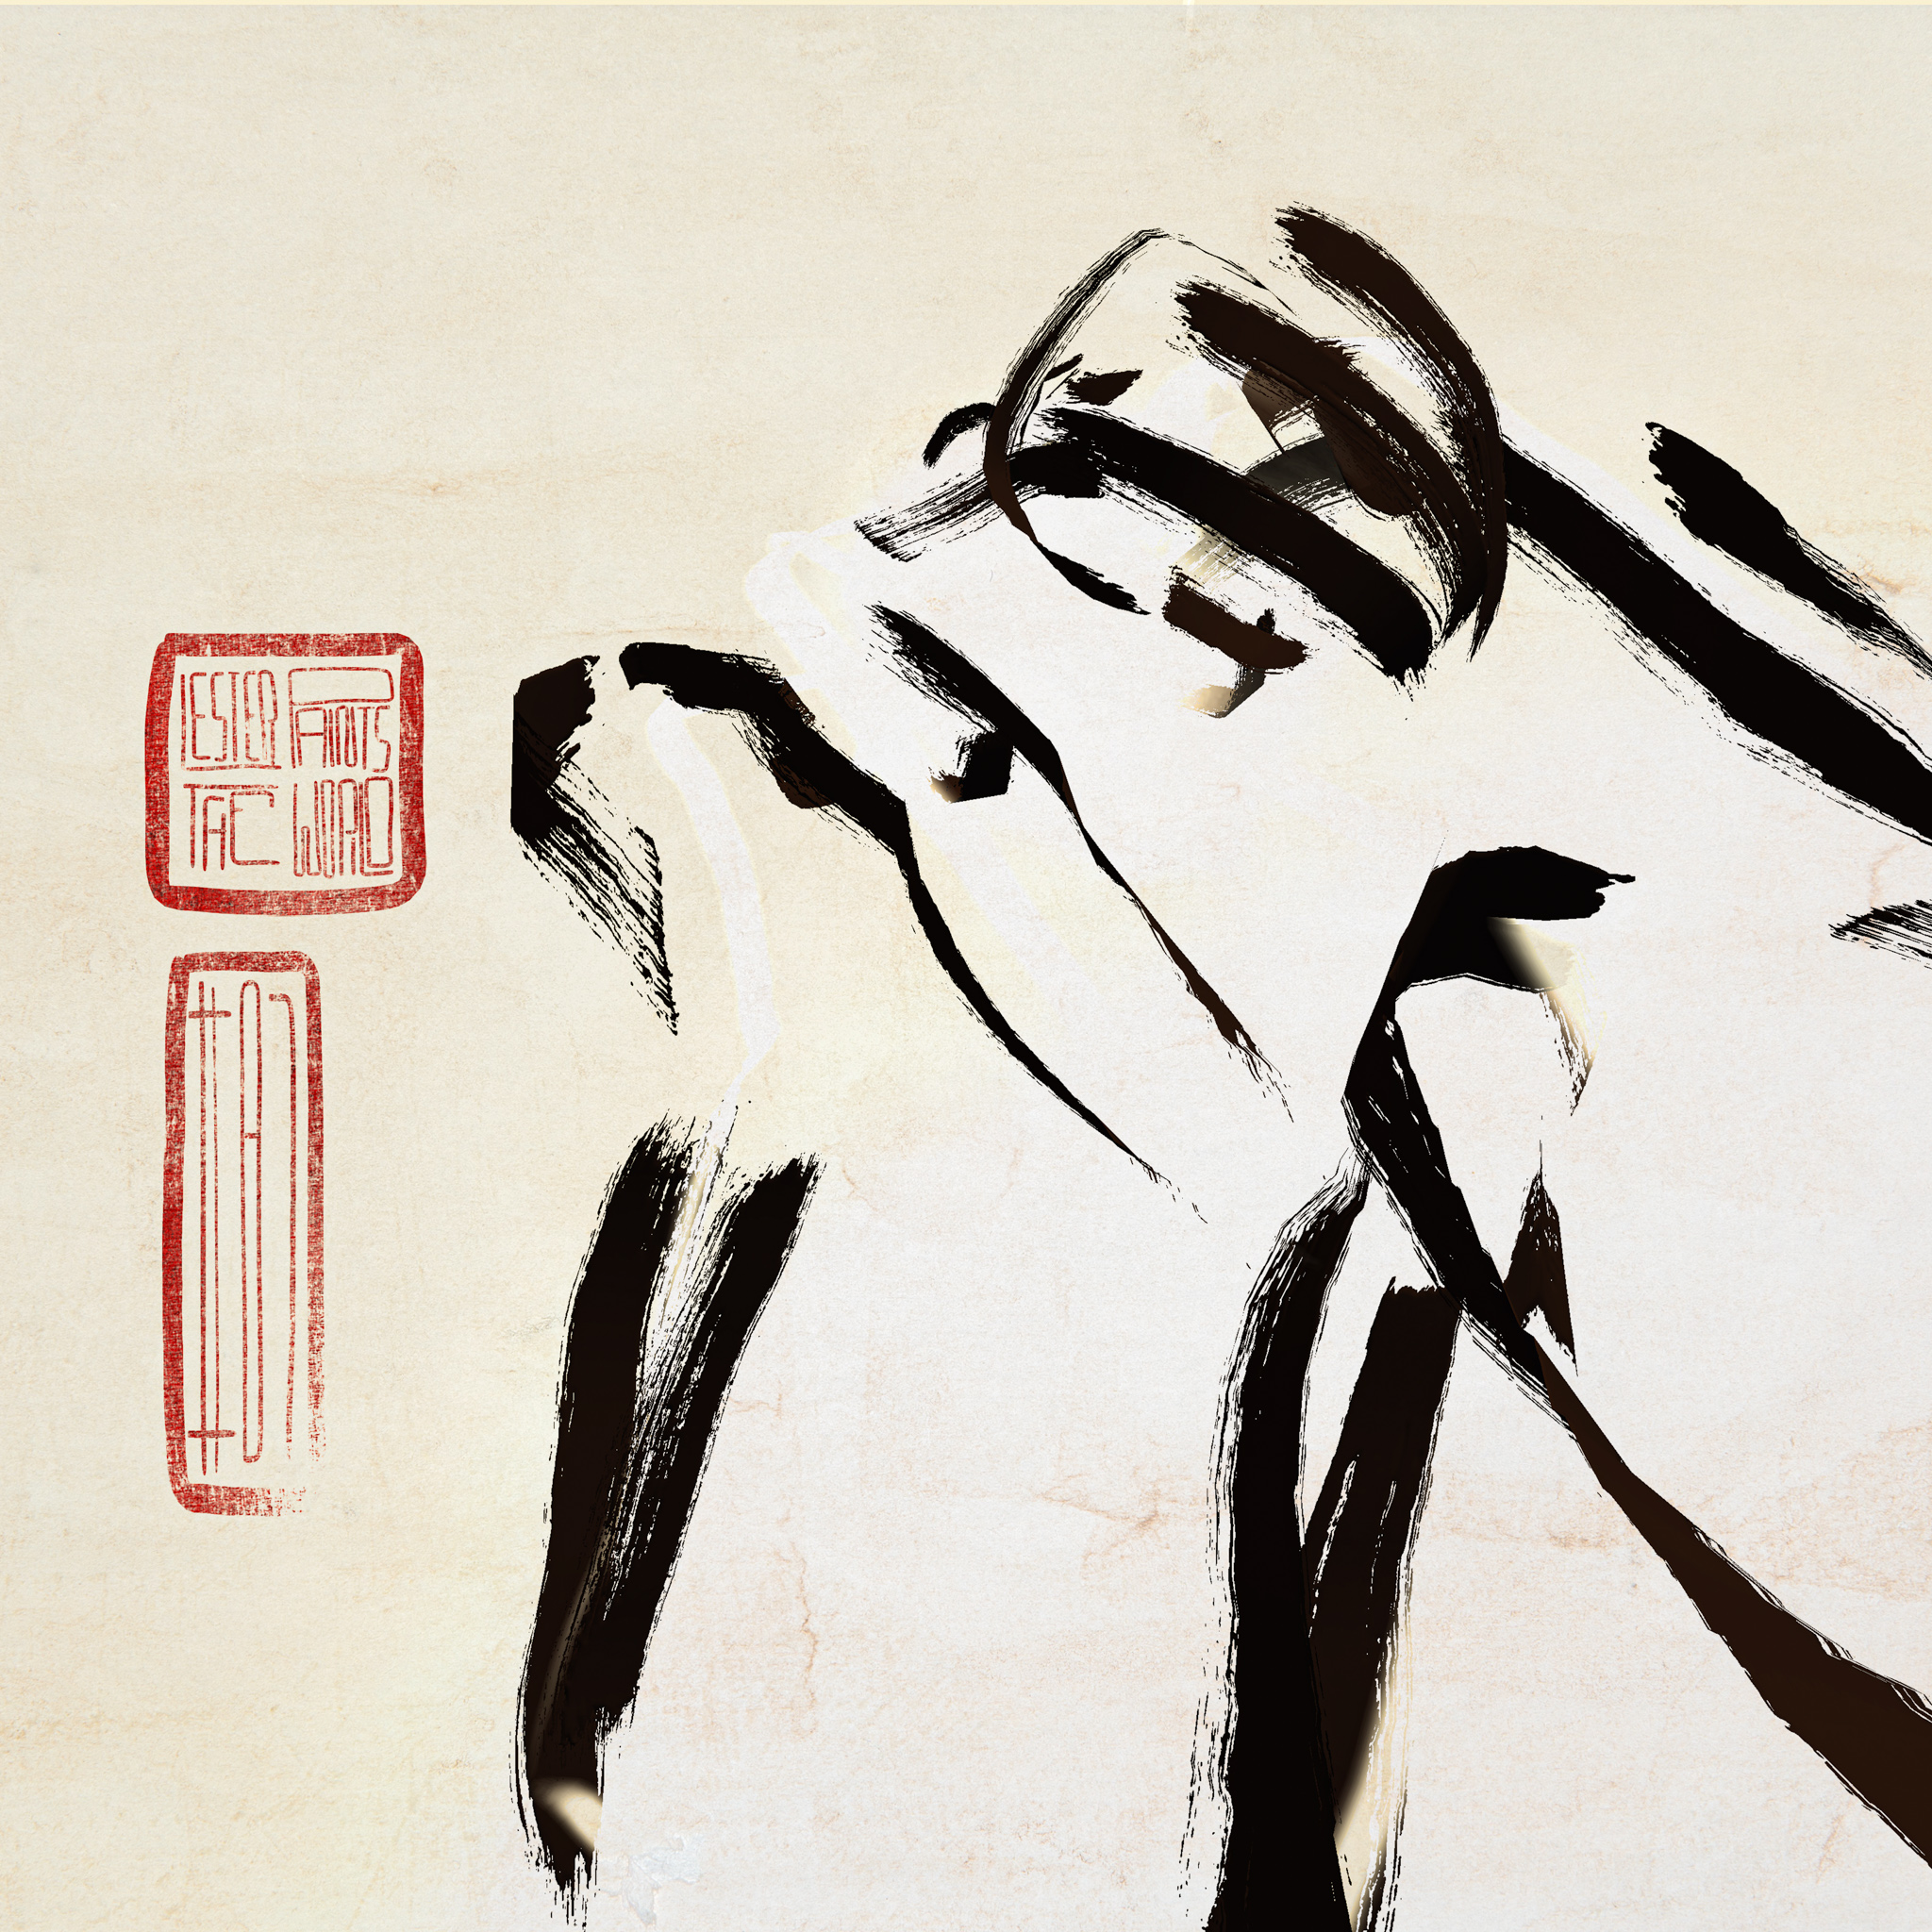 LESTER PAINTS
THE WORLD